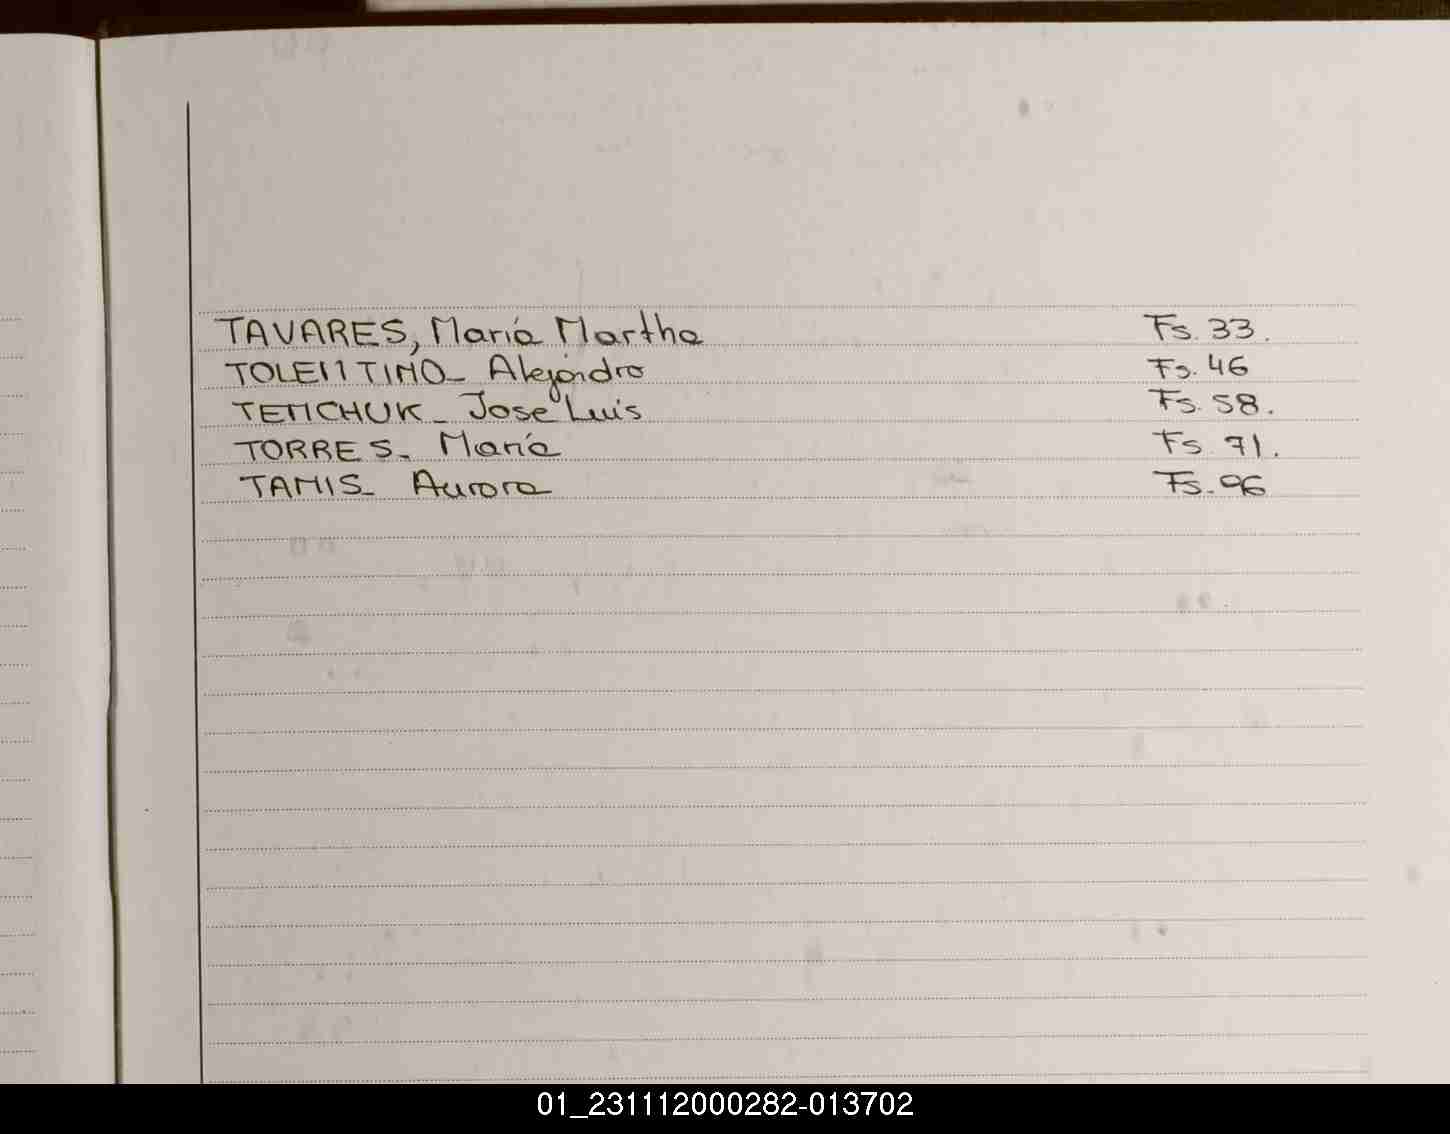 TAVARES, María Martha Fs. 33.
TOLENTINO_ Alejandro Fs. 46
TEMCHUK_ Jose Luis Fs. 58.
TORRES_ María Fs. 71.
TAMIS_ Aurora Fs. 96
01_231112000282-013702